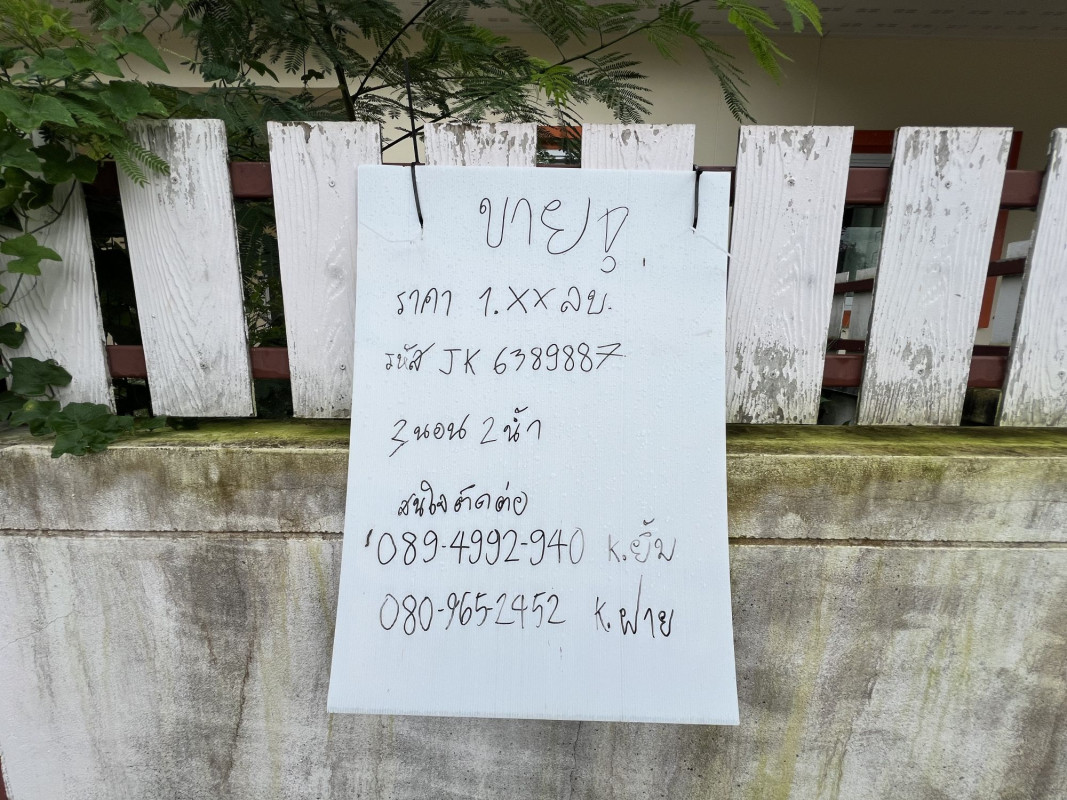 ขาย
ราคา 1.XX ลบ.
รหัส JK 6389887
3 นอน 2 น้ำ
สนใจติดต่อ
089-4992-940 K.ยิ้ม
080-965-2452 K.ฝ้าย